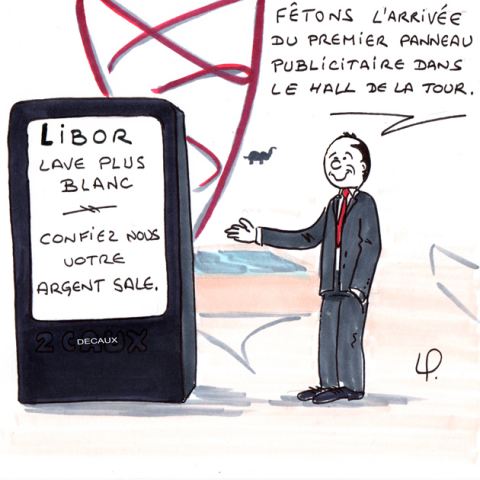 FÊTONS L'ARRIVÉE
DU PREMIER PANNEAU
PUBLICITAIRE DANS
LE HALL DE LA TOUR.
LIBOR
LAVE PLUS
BLANC
CONFIEZ NOUS
VOTRE
ARGENT SALE.
2 CAUX
DECAUX
φ.